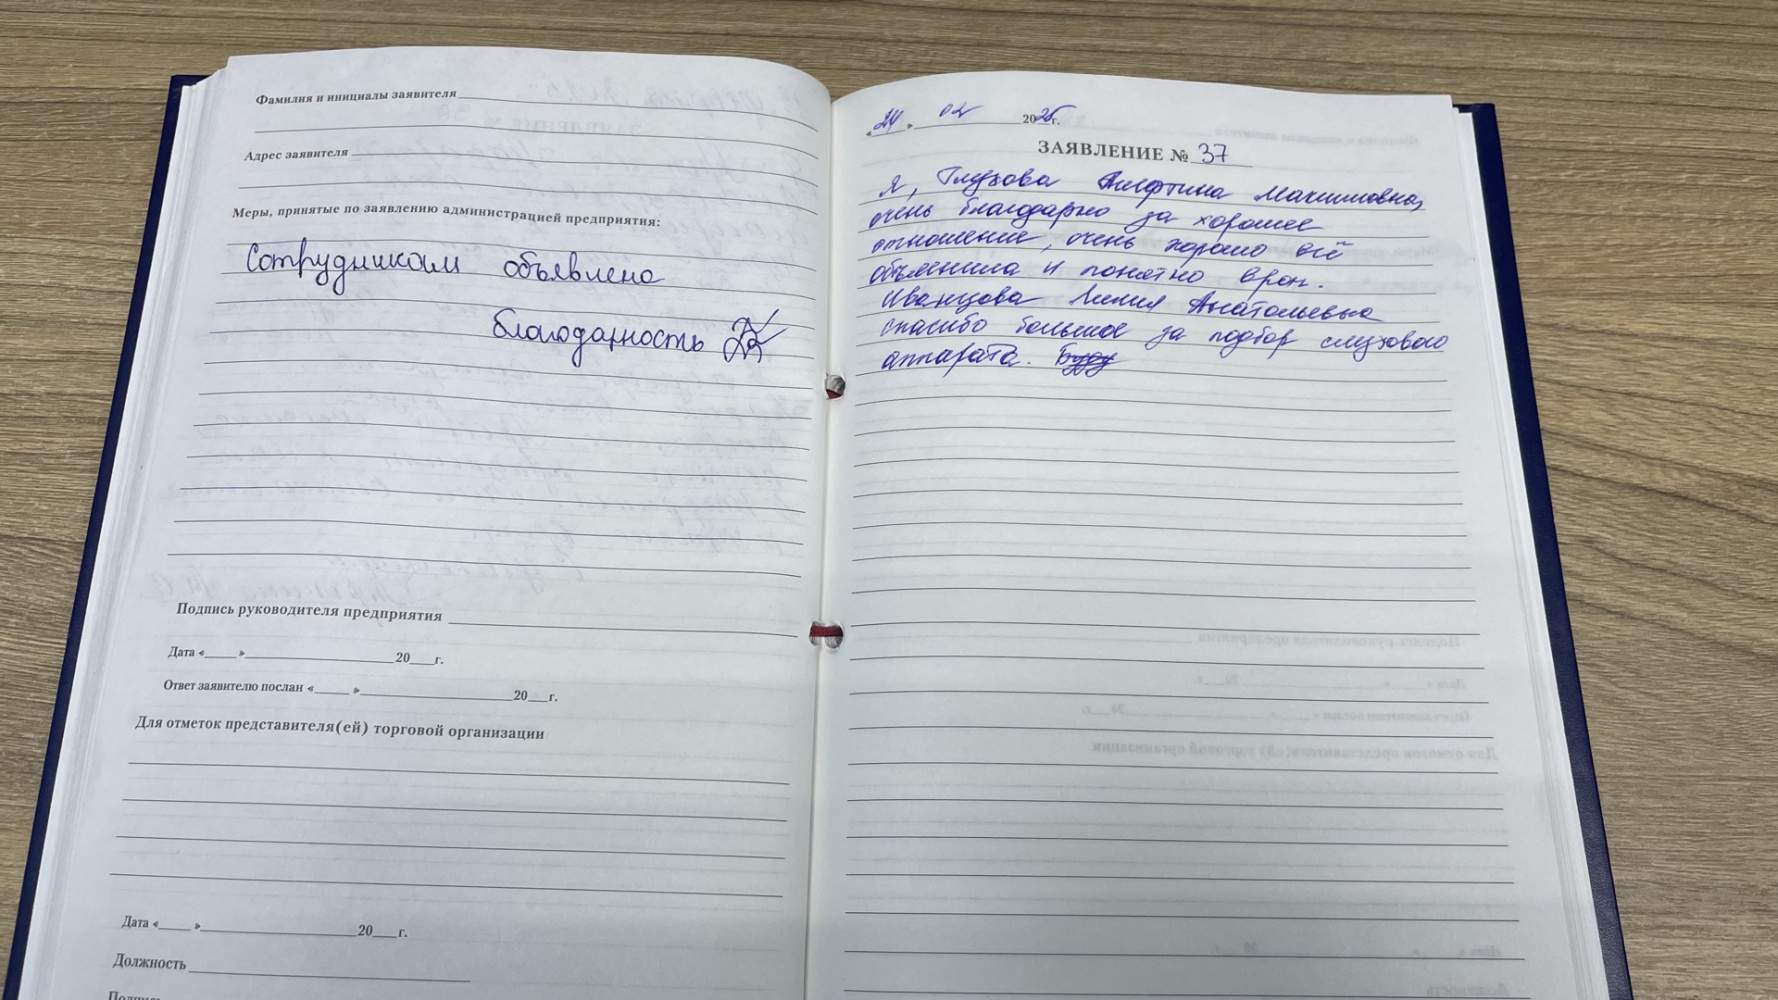 Фамилия и инициалы заявителя
Адрес заявителя
Меры, принятые по заявлению администрацией предприятия:
Сотрудникам объявлена
благодарность
Подпись руководителя предприятия
Дата «____ »____ 20___г.
Ответ заявителю послан «____ »____ 20___г.
Для отметок представителя(ей) торговой организации
Дата «____ »____ 20___г.
Должность
Подпись
«24» 02 2025г.
ЗАЯВЛЕНИЕ № 37
Я, Глухова Алефтина Максимовна,
очень благодарно за хорошее
отношение, очень хорошо всё
объяснила и понятно врач.
Иванцова Лилия Анатольевна
спасибо большое за подбор слухового
аппарата. Буду